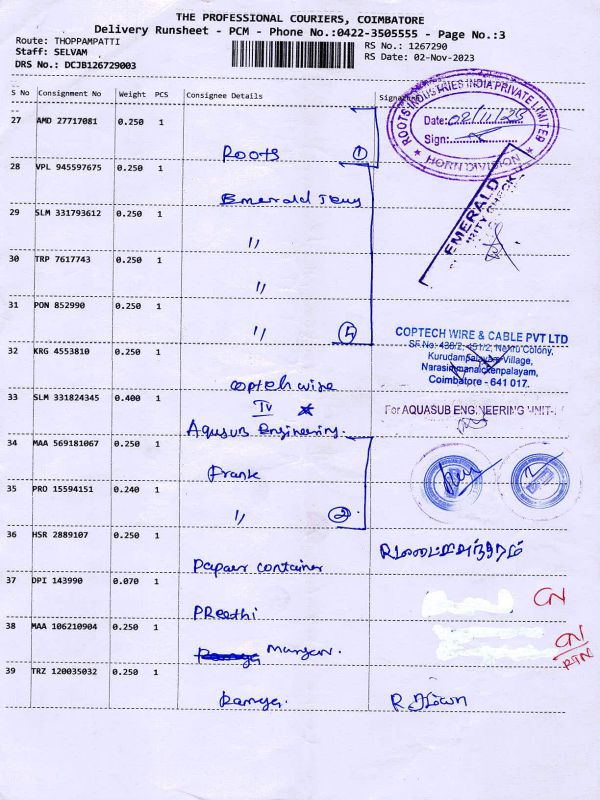 THE PROFESSIONAL COURIERS, COIMBATORE
Delivery Runsheet - PCM - Phone No.:0422-3505555 - Page No.:3
Route: THOPPAMPATTI
RS No.: 1267290
Staff: SELVAM
RS Date: 02-Nov-2023
DRS No.: DCJB126729003
S No Consignment No Weight PCS Consignee Details
27 AMD 27717081 0.250 1
Roots 1
ROOTS INDUSTRIES INDIA PRIVATE LIMITED
Date: 02/11/23
Sign:
HORN DIVISION
28 VPL 945597675 0.250 1
Emerald
EMERALD
29 SLM 331793612 0.250 1
"
30 TRP 7617743 0.250 1
"
31 PON 852990 0.250 1
"
COPTECH WIRE & CABLE PVT LTD
Kurudampalayam Village,
Narasimmanaickenpalayam,
Coimbatore - 641 017.
32 KRG 4553810 0.250 1
coptech wire
33 SLM 331824345 0.400 1
IV
Aquasub Engineering.
For AQUASUB ENGINEERING UNIT-
34 MAA 569181067 0.250 1
Frank
35 PRO 15594151 0.240 1
" 2
36 HSR 2889107 0.250 1
Papaer container
37 DPI 143990 0.070 1
PReethi
CN
38 MAA 106210904 0.250 1
CN
RTN
39 TRZ 120035032 0.250 1
Ramya.